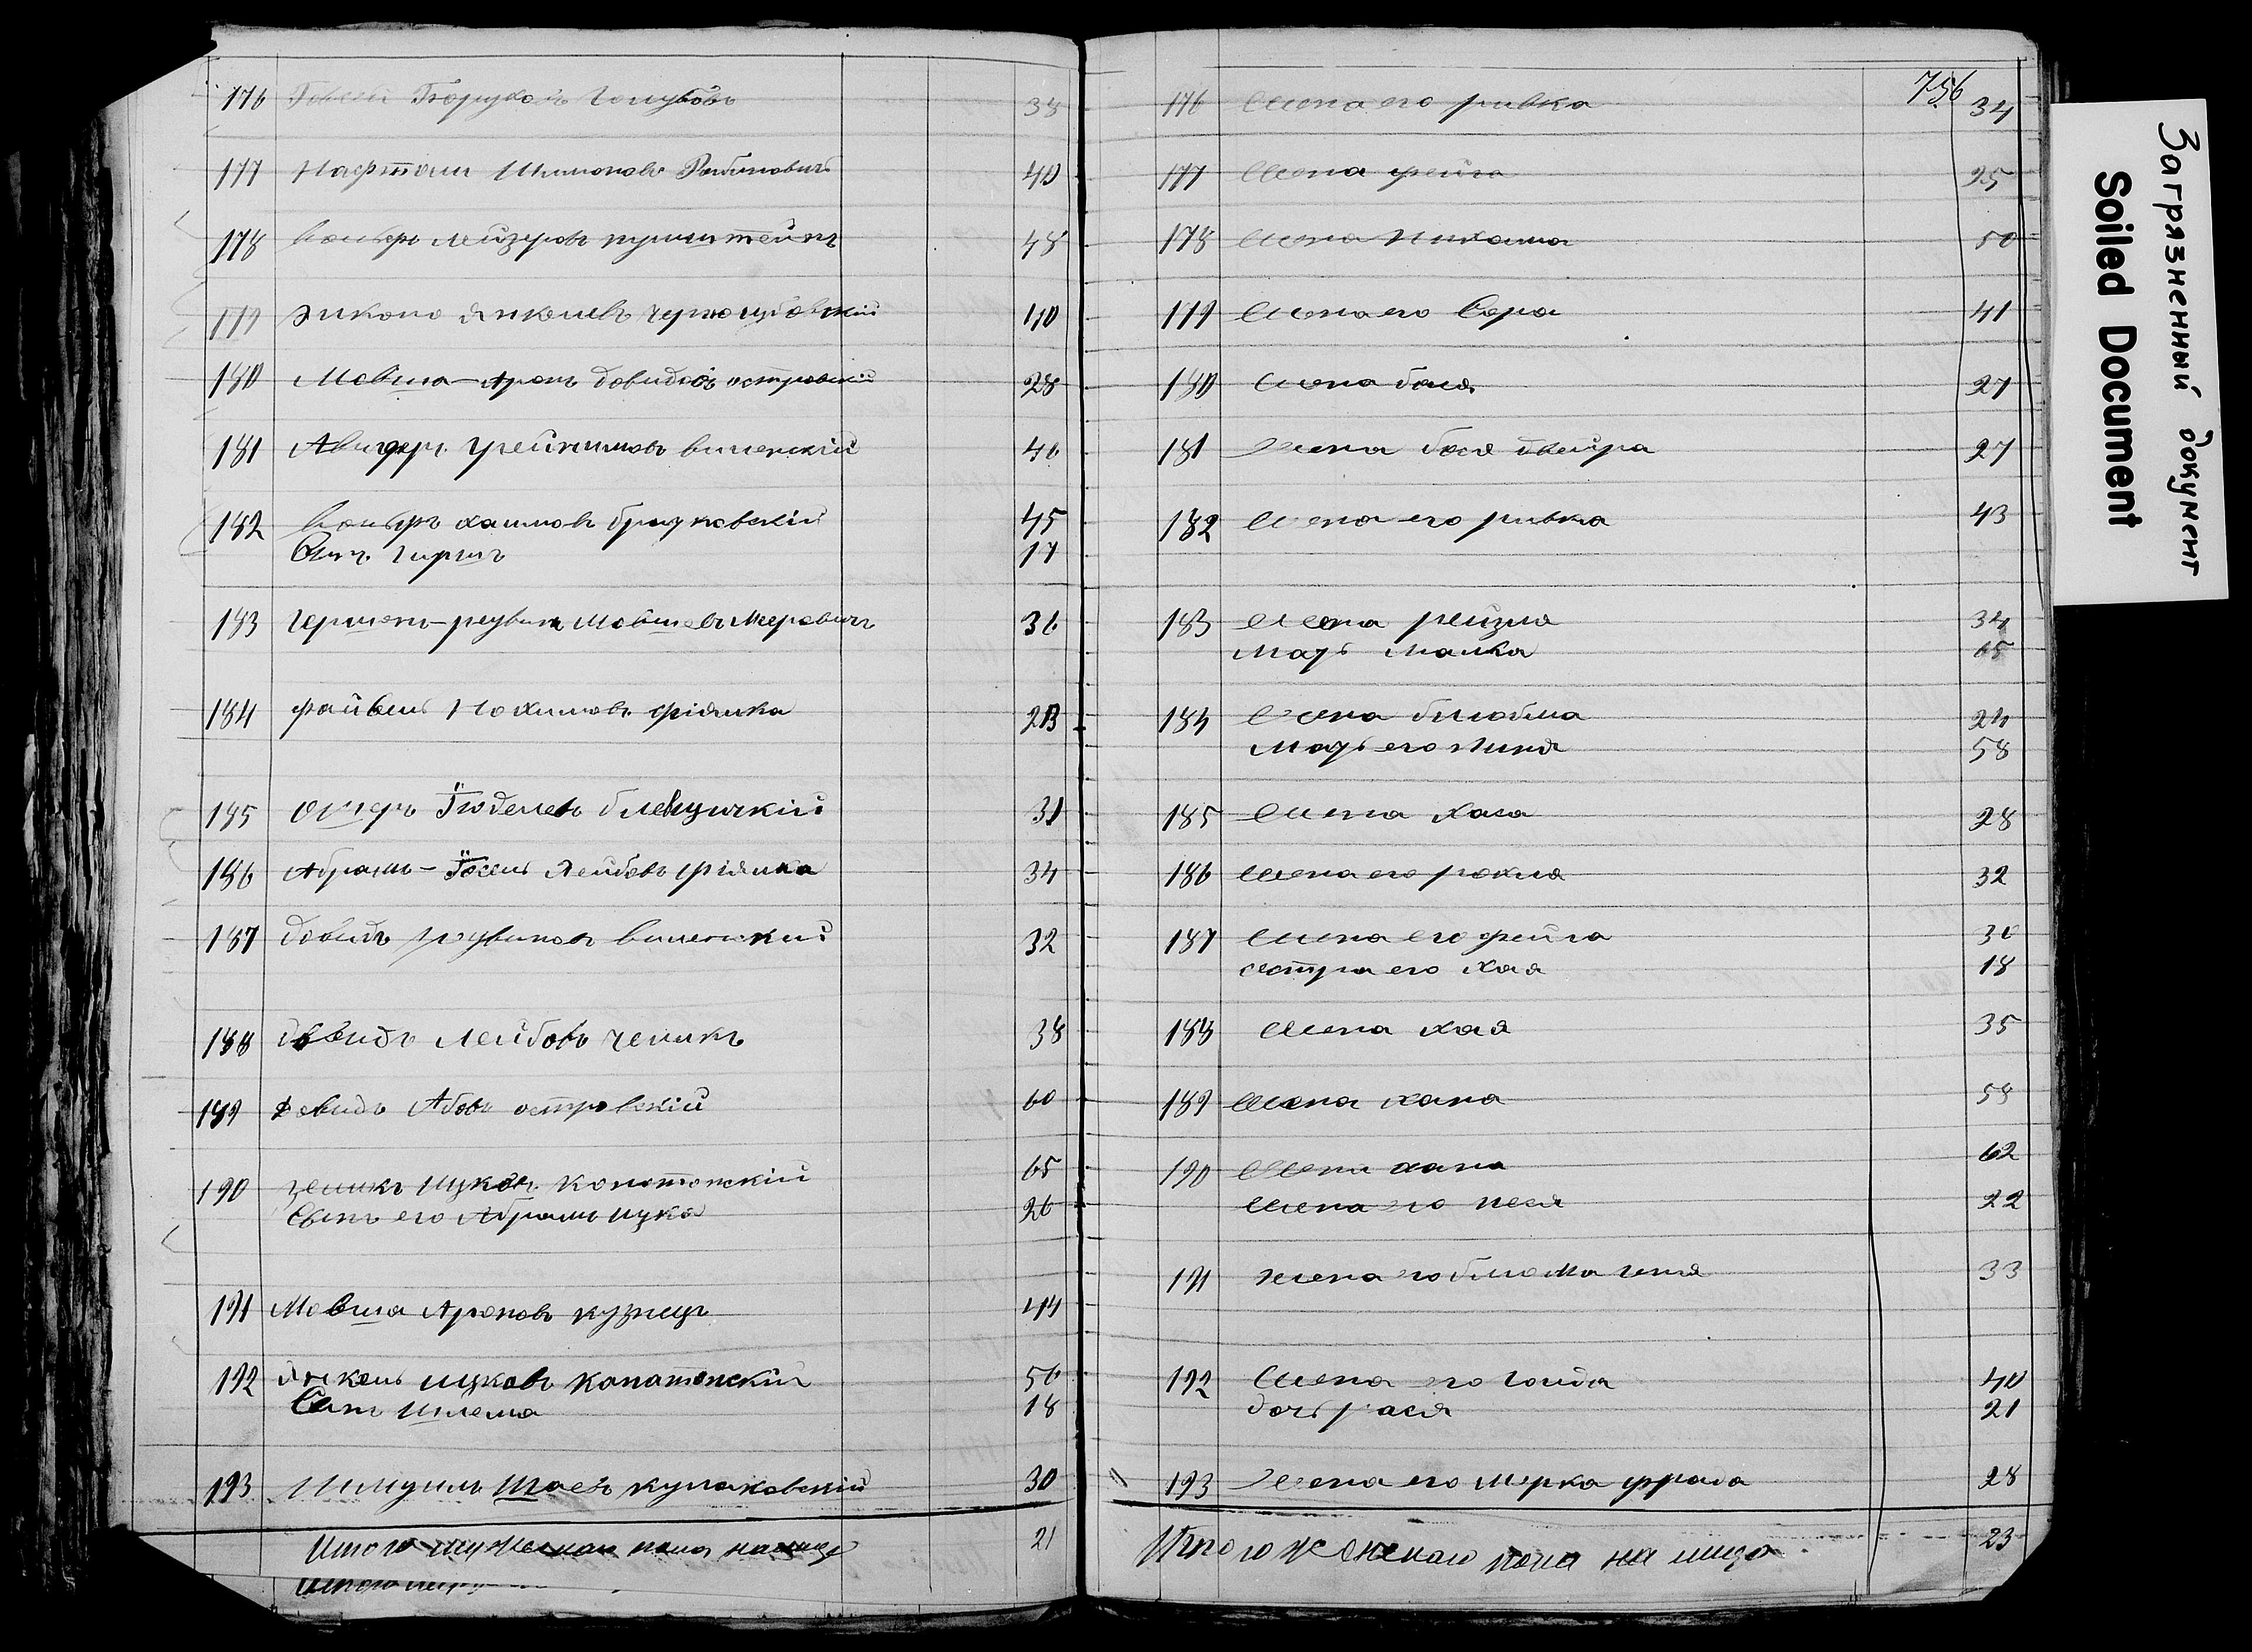 176 Борухов Голубовъ 38
177 Нафтали Шимоновъ Рабиновичъ 40
178 лейзеровъ 48
179 Янкелевъ 40
180 Мовша-Аронъ Довидовъ островскій 28
181 виленскій 46
182 хаимовъ 45
Сынъ Гиршъ 17
183 Гершонъ-рувинъ Мовшевъ Меровичъ 36
184 файвель Нохимовъ фрідлика 23
185 Ошеръ Іюделевъ 31
186 Абрамъ-Іосель Лейбовъ 34
187 Довидъ рувиновъ виленскій 32
188 Довидъ Лейбовъ 38
189 Довидъ Абовъ островскій 60
190 зеликъ ицковъ конотопскій 65
Сынъ его Абрамъ ицка 26
191 Мовша Ароновъ кузнецъ 44
192 Янкель ицковъ канатопскій 56
Сынъ Шлема 18
193 Шмуилъ Шаевъ кулаковскій 30
Итого мужескаго пола на лицо 21
Итого
756
176 Жена его ривка 34
177 Жена фейга 25
178 Жена 50
179 Жена его Сора 41
180 Жена бася 27
181 Жена бася двейра 27
182 Жена его ривка 43
183 Жена рейзля 34
Мать Малка 65
184 Жена блюма 24
Мать его 58
185 Жена Хася 28
186 Жена его рохля 32
187 Жена его фейга 30
сестра его Хая 18
188 Жена хая 35
189 Жена хана 58
190 Жена хана 62
Жена его песя 22
191 жена его блюма геня 33
192 Жена его голда 40
дочь рася 21
193 Жена его Мерка фрада 28
Итого женскаго пола на лицо 23
Загрязненный документ
Soiled Document